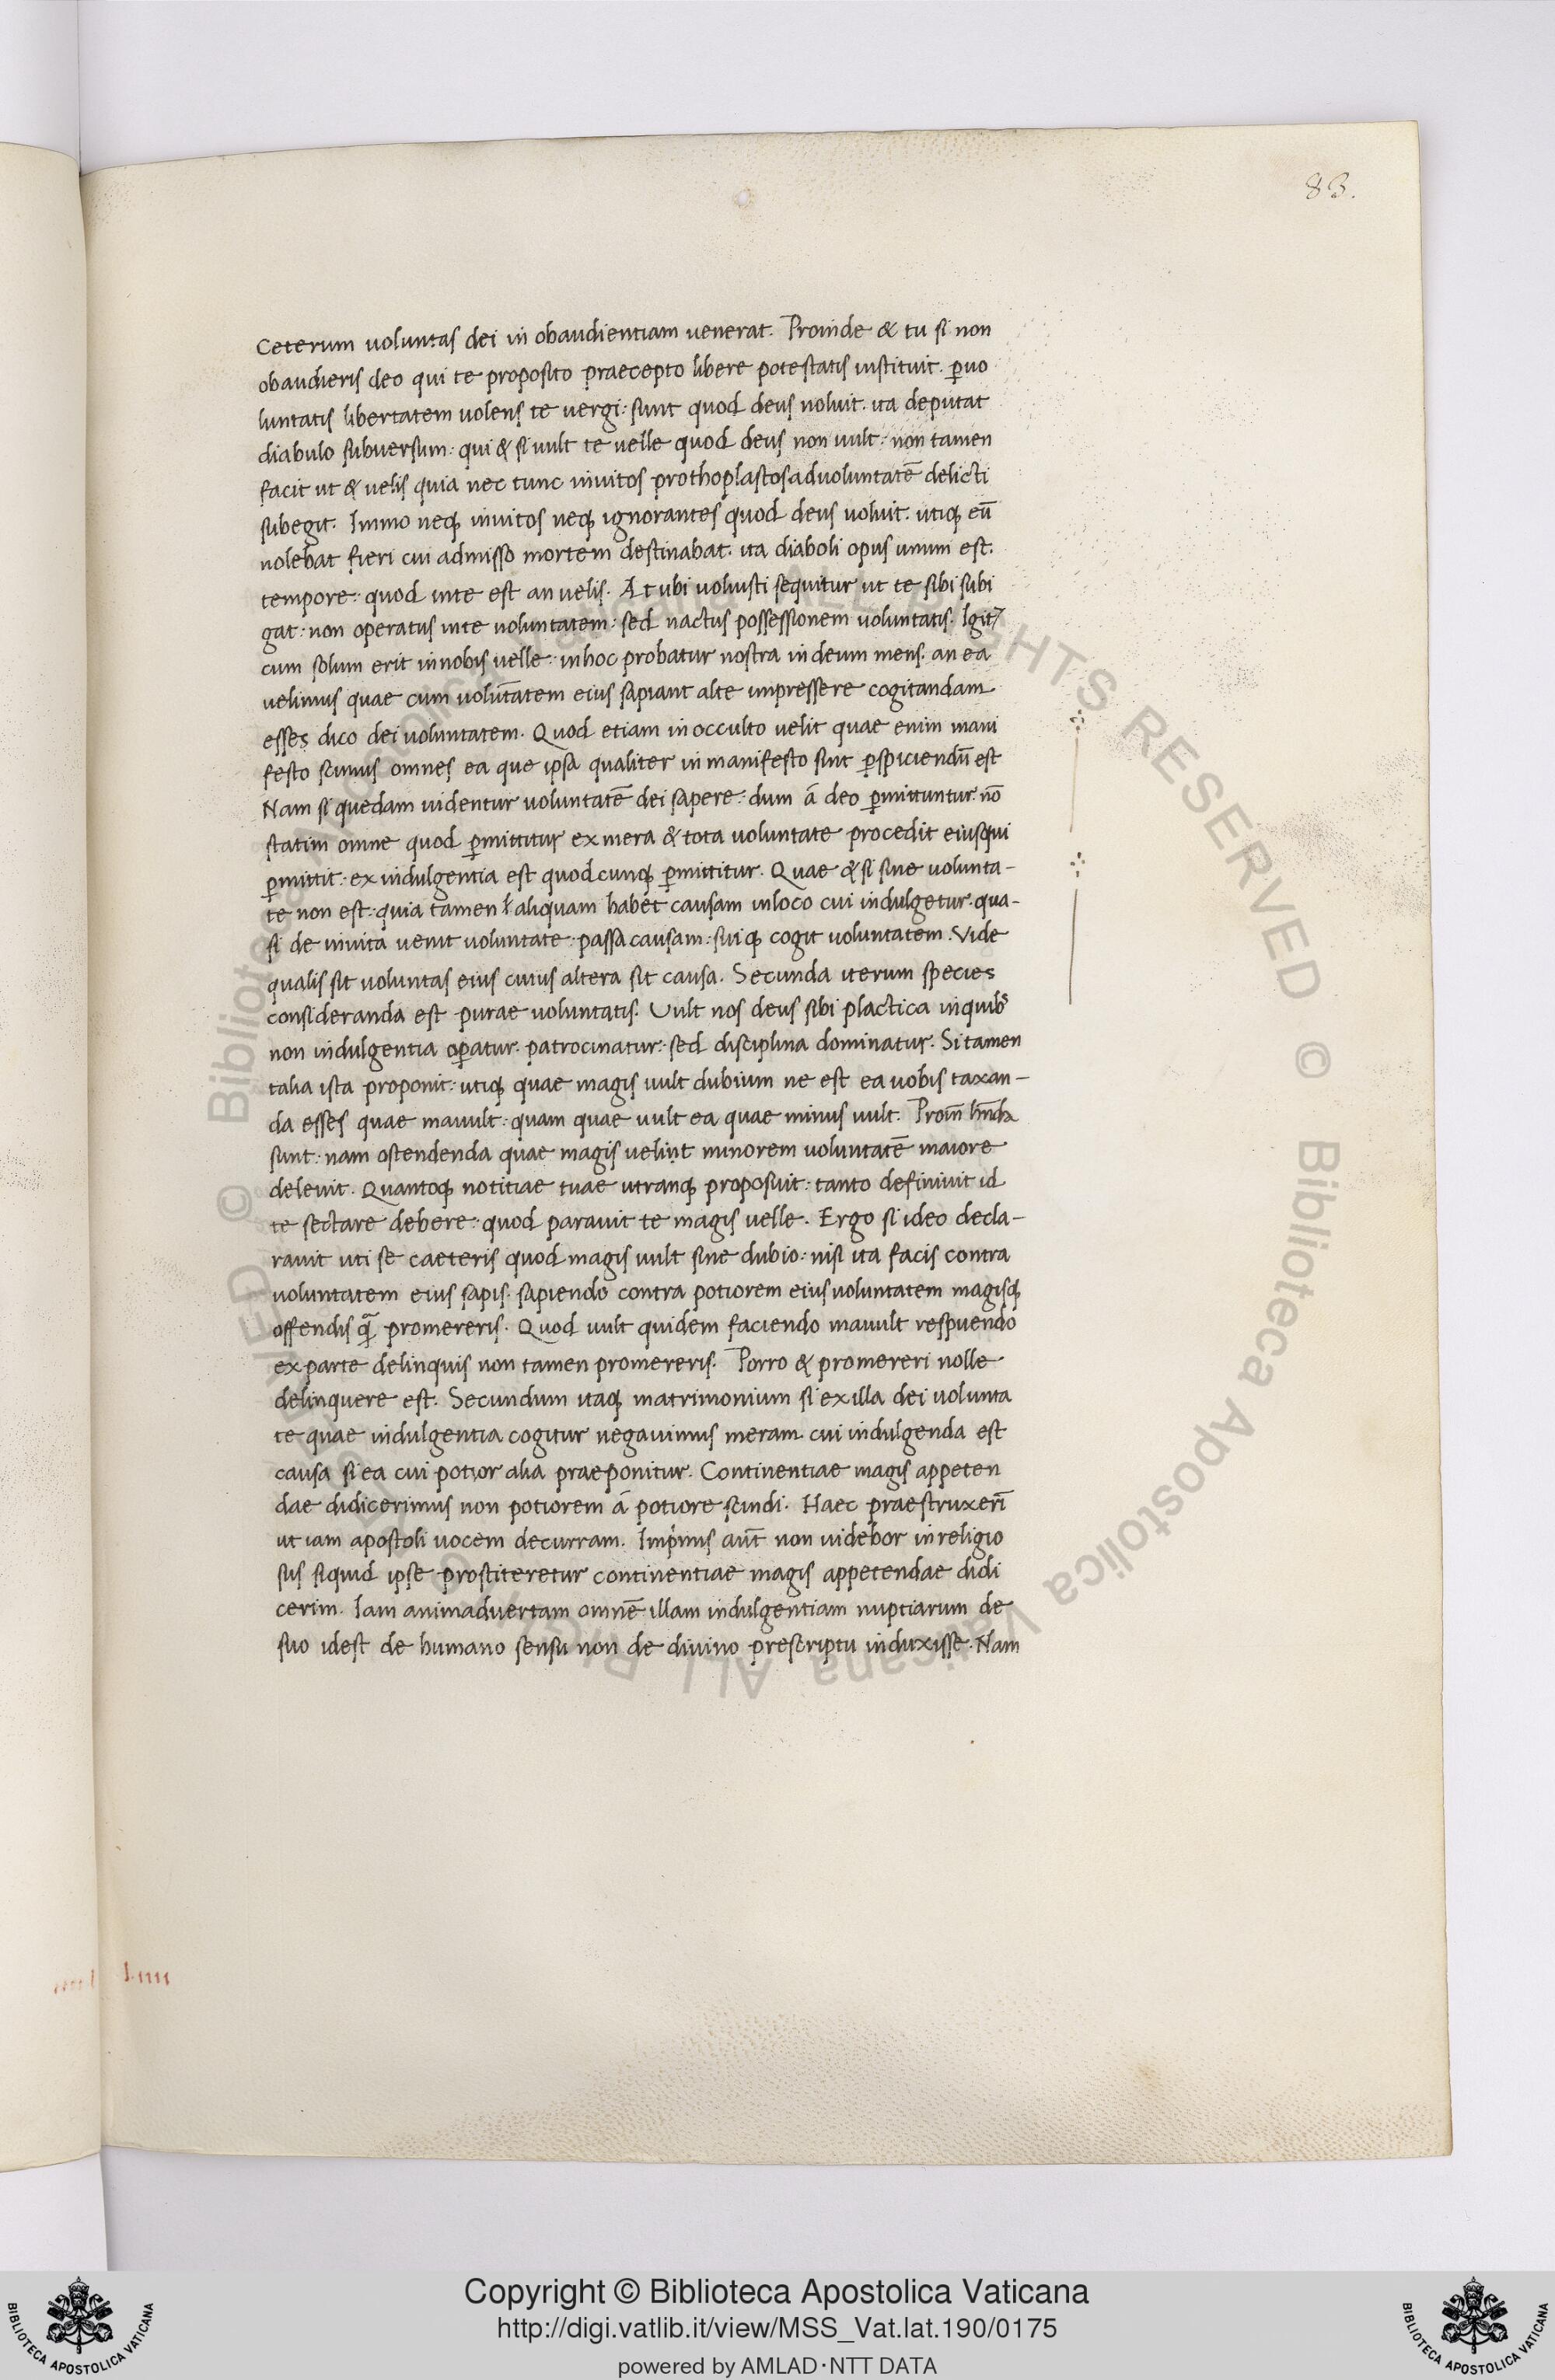 83.
Ceterum uoluntas dei in obaudientiam uenerat. Proinde & tu si non
obaudieris deo qui te proposito praecepto libere potestatis instituit. ꝑuo
luntatis libertatem uolens te uergi: sunt quod deus noluit. ita deputat
diabulo subuersum: qui & si uult te uelle quod deus non uult: non tamen
facit ut & uelis quia nec tunc inuitos prothoplastos aduoluntatē delicti
subegit. Immo neqꝫ inuitos neqꝫ ignorantes quod deus uoluit. utiqꝫ eū
nolebat fieri cui admisso mortem destinabat. ita diaboli opus unum est.
tempore: quod inte est an uelis. At ubi uoluisti sequitur ut te sibi subi
gat: non operatus inte uoluntatem: sed nactus possessionem uoluntatis. Igit᷑
cum solum erit innobis uelle: inhoc probatur nostra in deum mens. an ea
uelimus quae cum volūtatem eius sapiant alte impressere cogitandam
esses dico dei uoluntatem. Quod etiam in occulto uelit quae enim mani
festo scimus omnes ea que ipsa qualiter in manifesto sint ꝑspiciendū est
Nam si quedam uidentur uoluntatē dei sapere: dum á deo ꝑmittuntur: nō
statim omne quod ꝑmittitur ex mera & tota uoluntate procedit eiusqui
ꝑmittit: ex indulgentia est quodcunqꝫ ꝑmittitur. Quae & si sine uolunta-
te non est: quia tamen ł aliquam habet causam inloco cui indulgetur. qua-
si de inuita uenit uoluntate: passa causam: sui qꝫ cogit uoluntatem. Vide
qualis sit uoluntas eius cuius altera sit causa. Secunda iterum species
consideranda est purae uoluntatis. Vult nos deus sibi plactica inquibꝰ
non indulgentia oꝑatur. patrocinatur: sed disciplina dominatur. Si tamen
talia ista proponit: utiqꝫ quae magis uult dubium ne est ea uobis taxan-
da esses quae mauult: quam quae uult ea quae minus uult.
sunt: nam ostendenda quae magis uelint minorem uoluntatē maiore
deleuit. Quantoqꝫ notitiae tuae utranqꝫ proposuit: tanto definiuit id
te sectare debere: quod parauit te magis uelle. Ergo si ideo decla-
rauit uti se caeteris quod magis uult sine dubio: nisi ita facis contra
uoluntatem eius sapis. sapiendo contra potiorem eius uoluntatem magisqꝫ
offendis q̄ promereris. Quod uult quidem faciendo mauult respuendo
exparte delinquis non tamen promereris. Porro & promereri nolle
delinquere est. Secundum itaqꝫ matrimonium si ex illa dei uolunta
te quae indulgentia cogitur negauimus meram cui indulgenda est
causa si ea cui potior alia praeponitur. Continentiae magis appeten
dae didicerimus non potiorem á potiore scindi. Haec praestruxerī
ut iam apostoli uocem decurram. Imprimis aūt non uidebor inreligio
sus siquid ipse prostiteretur continentiae magis appetendae didi
cerim. Iam animaduertam omnē illam indulgentiam nuptiarum de
suo idest de humano sensu non de diuino prescriptu induxisse. Nam
© Biblioteca Apostolica Vaticana ALL RIGHTS RESERVED © Biblioteca Apostolica Vaticana ALL RIGHTS RESERVED
Copyright © Biblioteca Apostolica Vaticana
http://digi.vatlib.it/view/MSS_Vat.lat.190/0175
powered by AMLAD·NTT DATA
BIBLIOTECA APOSTOLICA VATICANA
BIBLIOTECA APOSTOLICA VATICANA